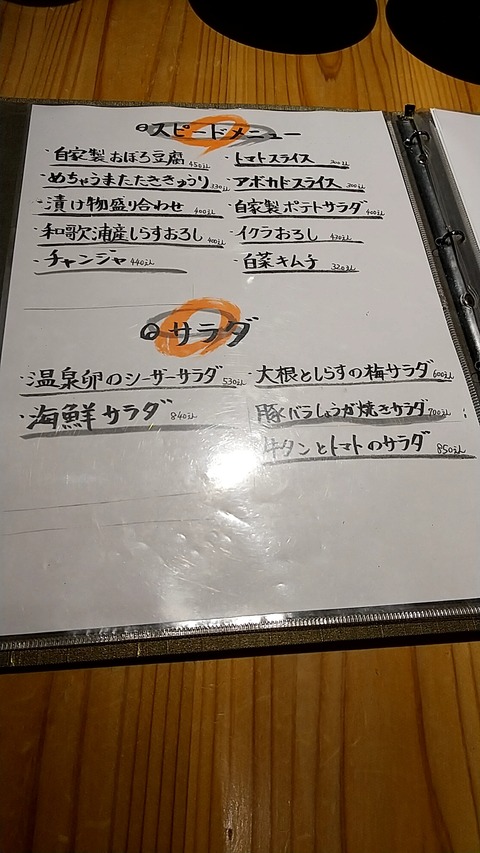 スピードメニュー
・自家製おぼろ豆腐 450えん
・めちゃうまたたききゅうり 330えん
・漬け物盛り合わせ 400えん
・和歌浦産しらすおろし 400えん
・チャンジャ 440えん
・トマトスライス 300えん
・アボカドスライス 300えん
・自家製ポテトサラダ 400えん
・イクラおろし 430えん
・白菜キムチ 320えん
サラダ
・温泉卵のシーザーサラダ 530えん
・海鮮サラダ 840えん
・大根としらすの梅サラダ 600えん
豚バラしょうが焼きサラダ 700えん
牛タンとトマトのサラダ 850えん